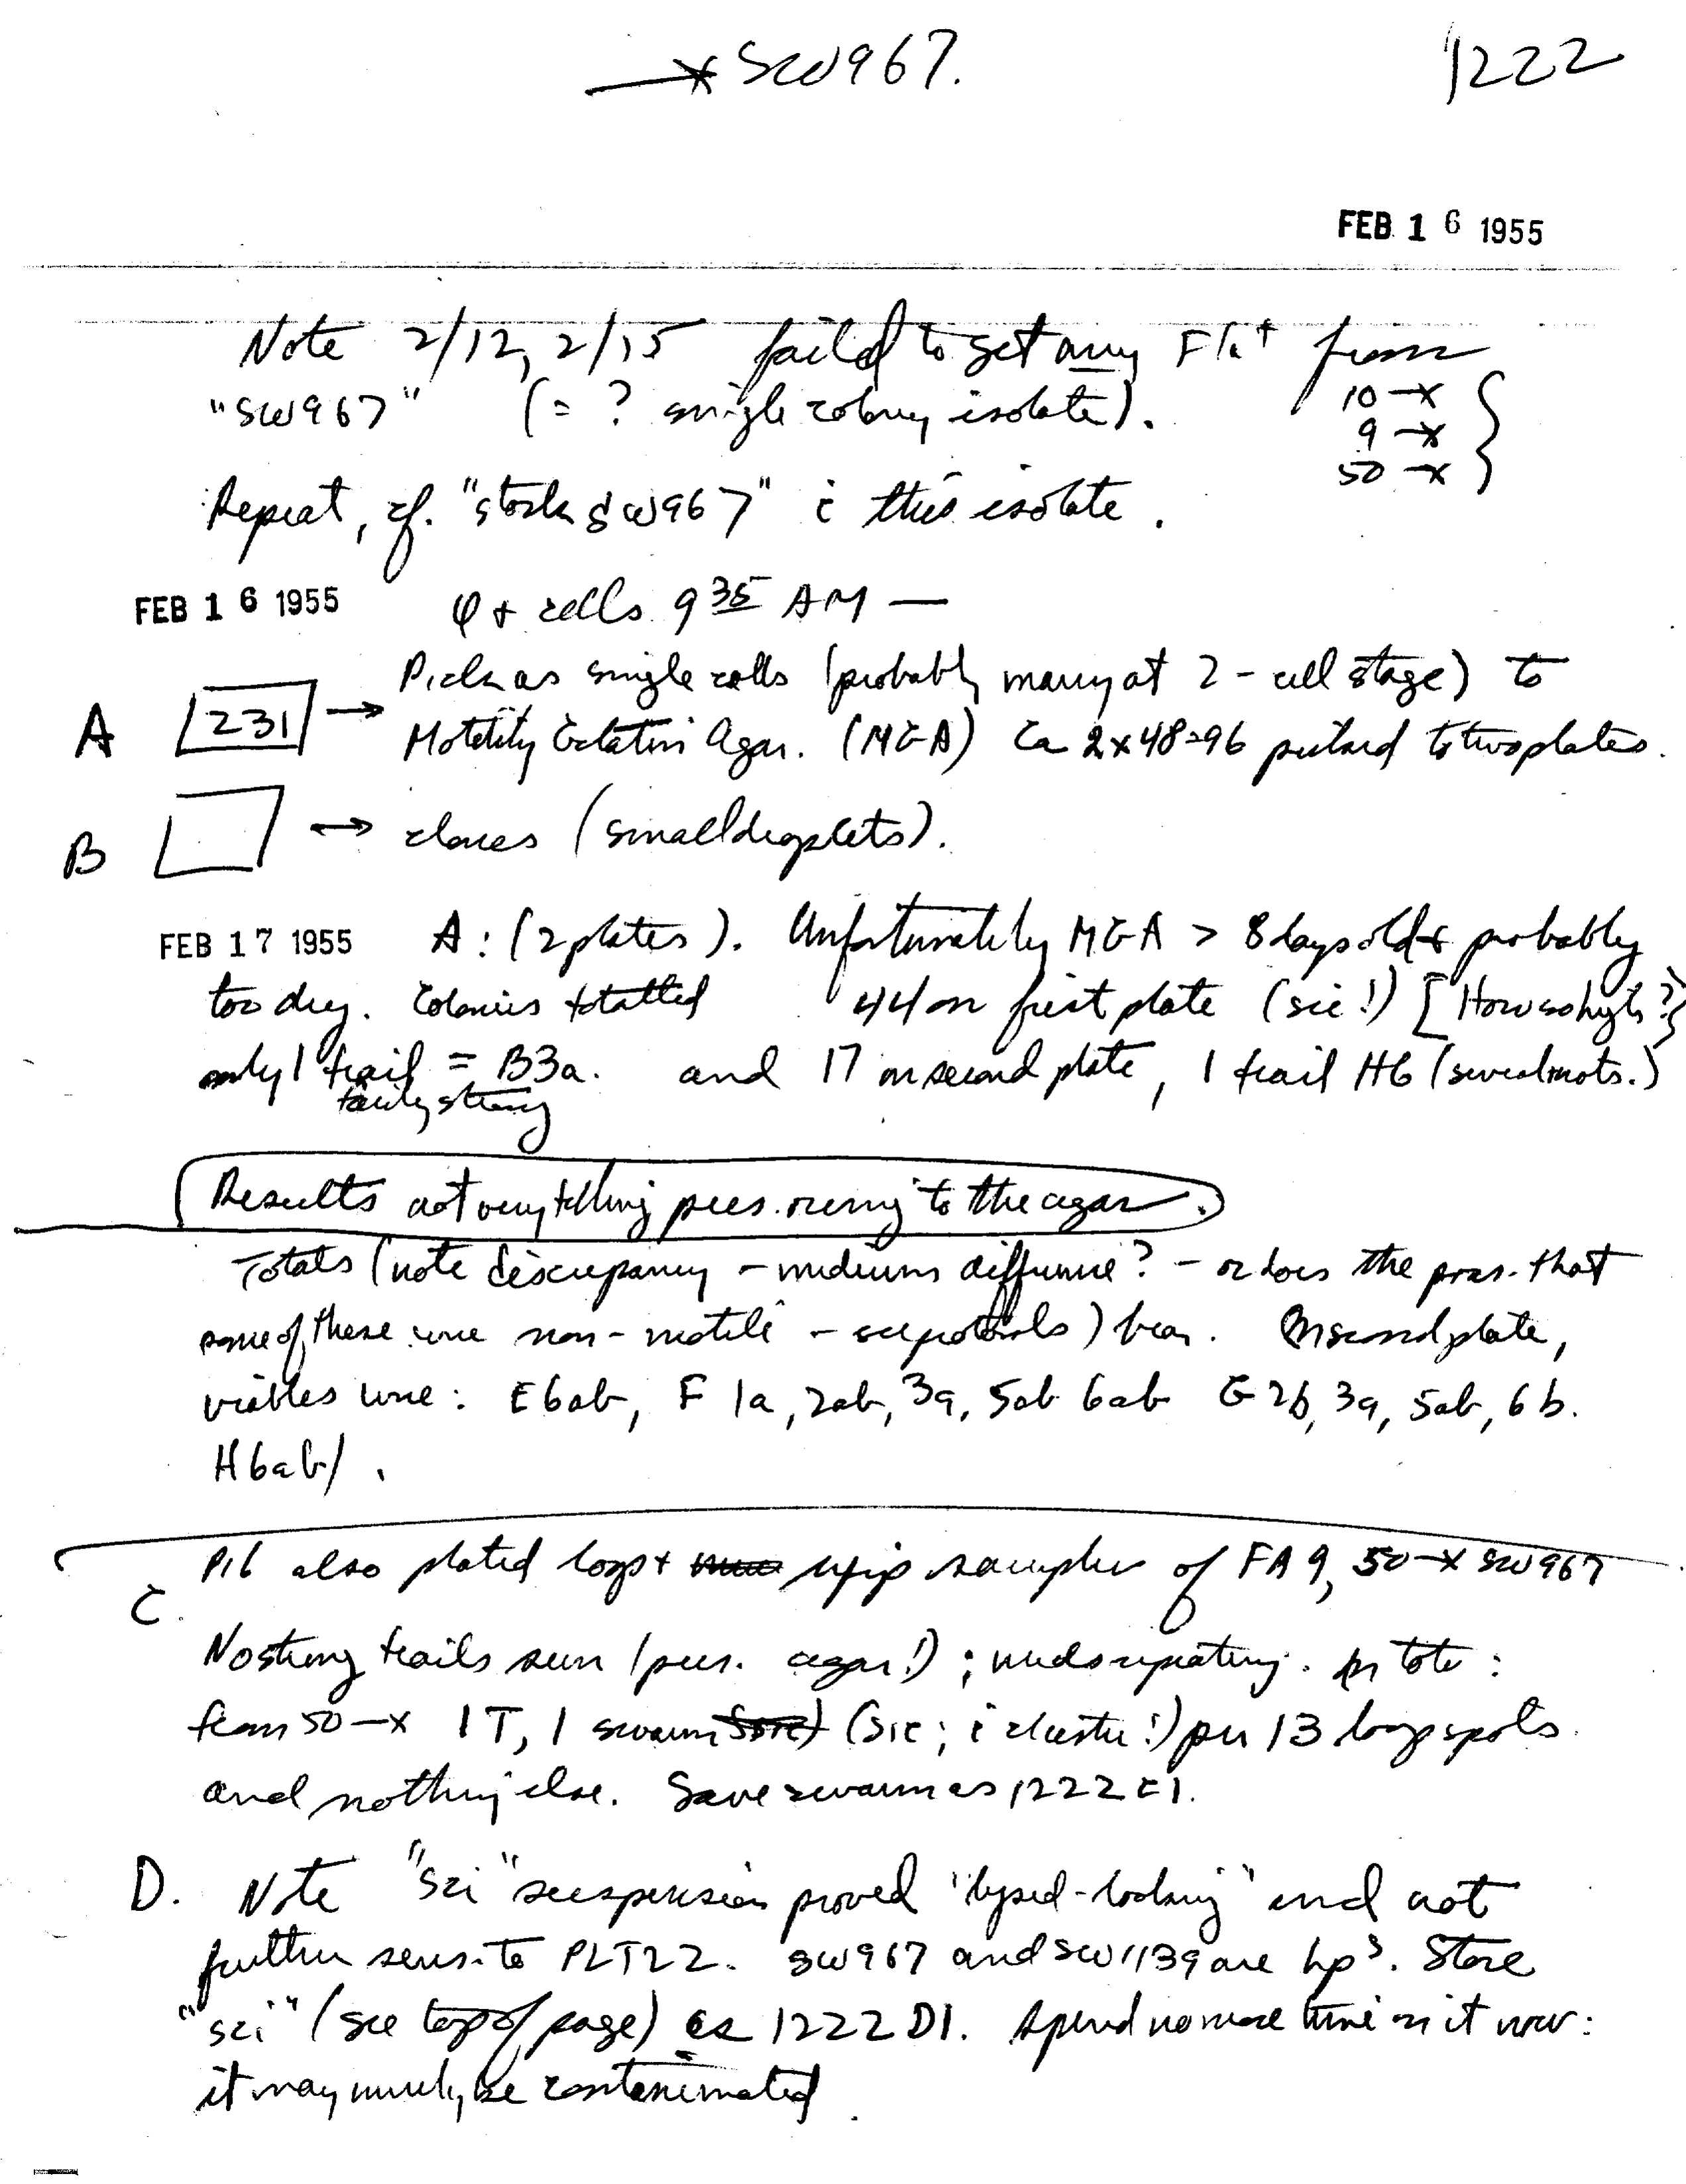 —x SW967. 1222
FEB 16 1955
Note 2/12, 2/15 failed to get any Fla+ from
"SW967" (= ? single colony isolate). 10 —x
9 —x
50 —x
Repeat, cf. "stock SW967" c̄ this isolate.
FEB 16 1955 φ + cells 9 35 AM —
A 231 → Pick as single cells (probably many at 2-cell stage) to
Motility Gelatin Agar. (MGA) Ca 2x48=96 picked to two plates.
B → clones (small droplets).
FEB 17 1955 A: (2 plates). Unfortunately MGA > 8 days old & probably
too dry. Colonies totalled 44 on first plate (sic!) [How so high?]
only 1 trail = B3a. and 17 on second plate, 1 trail H6 (several mots.)
fairly strong
Results not very telling pres. owing to the agar.
Totals (note discrepancy – mediums difference? – or does the poss. that
some of these were non-motile – bear. On second plate,
viables were: E6ab, F 1a, 2ab, 3a, 5ab 6ab G 2b, 3a, 5ab, 6b.
H6ab).
C. P16 also plated loops + samples of FA 9, 50 —x SW967
No strong trails seen (pres. agar!); needs repeating. In toto:
from 50 —x 1T, 1 swarm (sic; c̄ cluster!) per 13 loop spots
and nothing else. Save swarm as 1222C1.
D. Note "sci" suspension proved "lysed-looking" and not
further sens. to PLT22. SW967 and SW1139 are hp s. Store
"sci" (see top of page) as 1222 D1. Spend no more time on it now:
it may merely be contaminated.